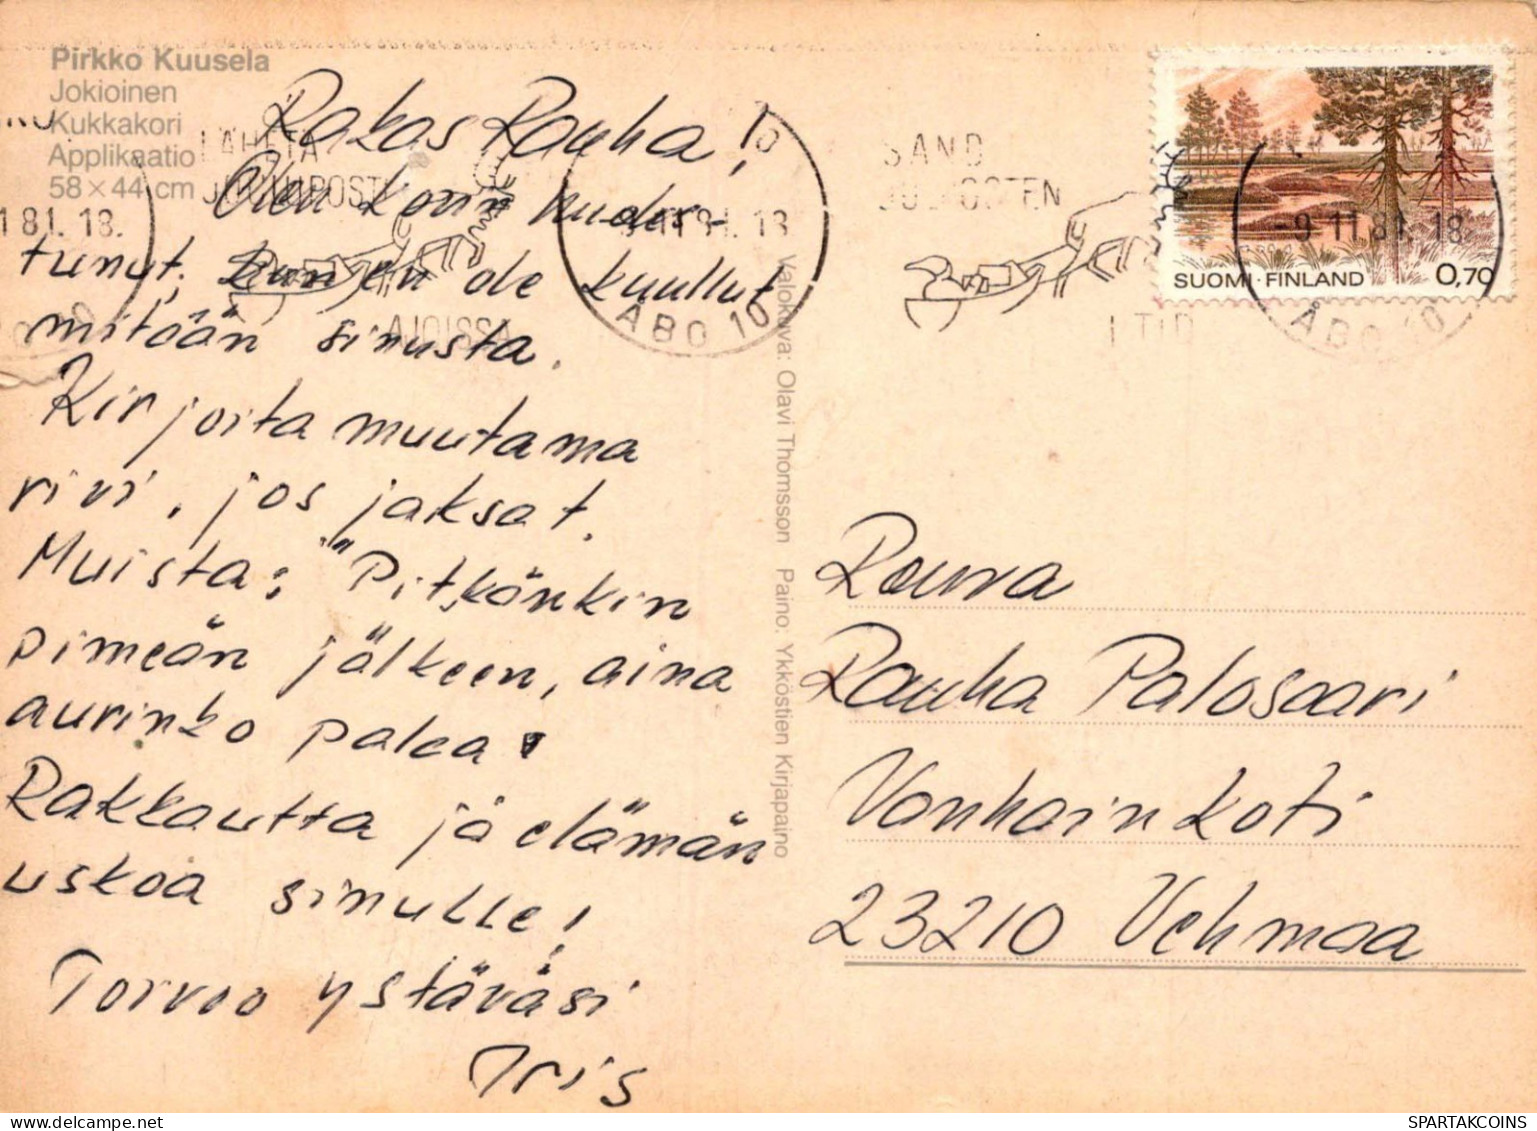 Pirkko Kuusela
Jokioinen
Kukkakori
Applikaatio
58 × 44 cm
LÄHETÄ
AJOISSA
81. 18.
-9.11.81. 18
ÅBO 10
SAND
JULPOSTEN
I TID
-9 11 81. 18
ÅBO 10
SUOMI·FINLAND 0,70
Rakas Rauha!
Olen kovin huoles-
tunut, kun en ole kuullut
mitään sinusta.
Kirjoita muutama
rivi, jos jaksat.
Muista: "Pitkänkin
pimeän jälkeen, aina
aurinko palaa"
Rakkautta ja elämän
uskoa sinulle!
Toivoo ystäväsi
Iris
Valokuva: Olavi Thomsson Paino: Ykköstien Kirjapaino
Rouva
Rauha Palosaari
Vanhainkoti
23210 Vehmaa
SPARTAKCOINS.COM